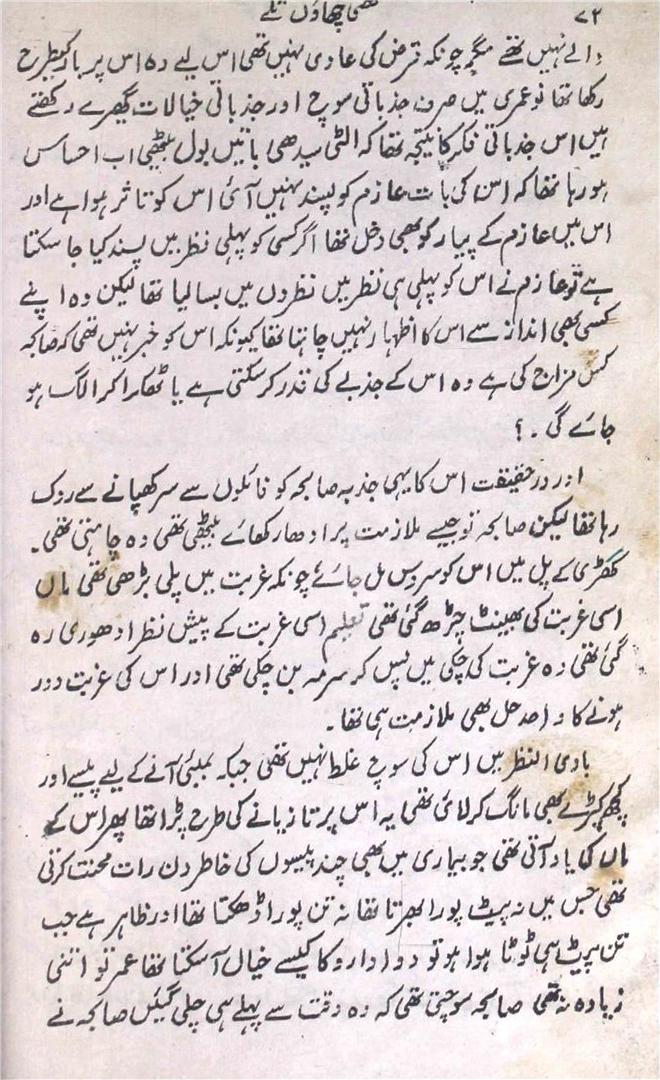 ۷۲
چھاؤں تلے
والے نہیں تھے مگر چونکہ قرض کی عادی نہیں تھی اس لیے وہ اس پر بار کیطرح
رکھا تھا نوعمری میں صرف جذباتی سوچ اور جذباتی خیالات گھیرے رکھتے
ہیں اس جذباتی فکر کا نتیجہ تھا کہ الٹی سیدھی باتیں بول بیٹھی اب احساس
ہو رہا تھا کہ اس کی بات عازم کو پسند نہیں آئی اس کو تاثر ہوا ہے اور
اس میں عازم کے پیار کو بھی دخل تھا اگر کسی کو پہلی نظر میں پسند کیا جا سکتا
ہے تو عازم نے اس کو پہلی ہی نظر میں نظروں میں بسا لیا تھا لیکن وہ اپنے
کسی بھی انداز سے اس کا اظہار نہیں چاہتا تھا کیونکہ اس کو خبر نہیں تھی کہ صابحہ
کس مزاج کی ہے وہ اس کے جذبے کی قدر کر سکتی ہے یا ٹھکرا کر الگ ہو
جائے گی ۔ ؟
اور در حقیقت اس کا یہی جذبہ صابحہ کو فائلوں سے سر کھپانے سے روک
رہا تھا لیکن صابحہ تو جیسے ملازمت پر ادھار کھائے بیٹھی تھی وہ چاہتی تھی ۔
گھڑی کے پل میں اس کو سروس مل جائے چونکہ غربت میں پلی بڑھی تھی ماں
اسی غربت کی بھینٹ چڑھ گئی تھی تعلیم اسی غربت کے پیش نظر ادھوری رہ
گئی تھی وہ غربت کی چکی میں پس کر سرمہ بن چکی تھی اور اس کی غربت دور
ہونے کا واحد حل بھی ملازمت ہی تھا ۔
بادی النظر میں اس کی سوچ غلط نہیں تھی جبکہ بمبئی آنے کے لیے پیسے اور
کچھ کپڑے بھی مانگ کر لائی تھی یہ اس پر تازیانے کی طرح پڑا تھا پھر اس کے
ماں کی یاد آتی تھی جو بیماری میں بھی چند پیسوں کی خاطر دن رات محنت کرتی
تھی جس میں نہ پیٹ پورا بھرتا تھا نہ تن پورا ڈھکتا تھا اور ظاہر ہے جب
تن پیٹ ہی ٹوٹا ہوا ہو تو دوا دارو کا کیسے خیال آ سکتا تھا عمر تو اتنی
زیادہ نہ تھی صابحہ سوچتی تھی کہ وہ وقت سے پہلے ہی چلی گئیں صابحہ نے